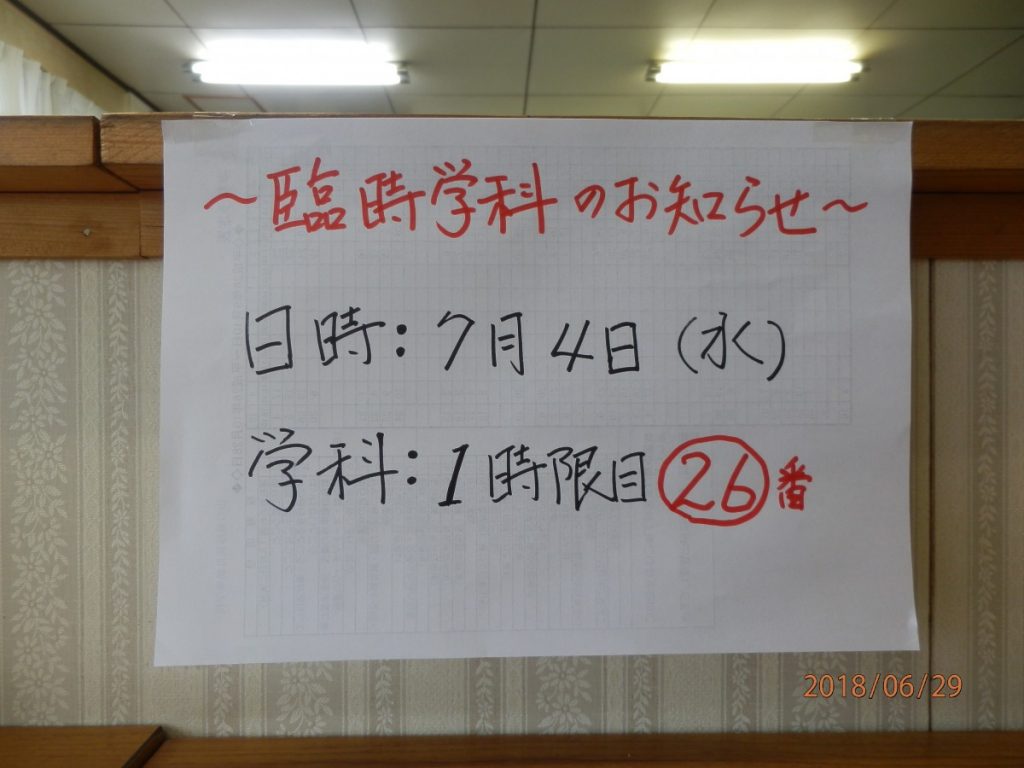 ～臨時学科のお知らせ～
日時：7月4日（水）
学科：1時限目 ㉖番
2018/06/29